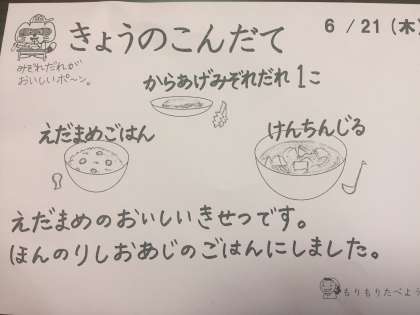 きょうのこんだて
6/21(木)
みぞれだれが
おいしいポ〜ン。
からあげみぞれだれ1こ
えだまめごはん
けんちんじる
えだまめのおいしいきせつです。
ほんのりしおあじのごはんにしました。
もりもりたべよう